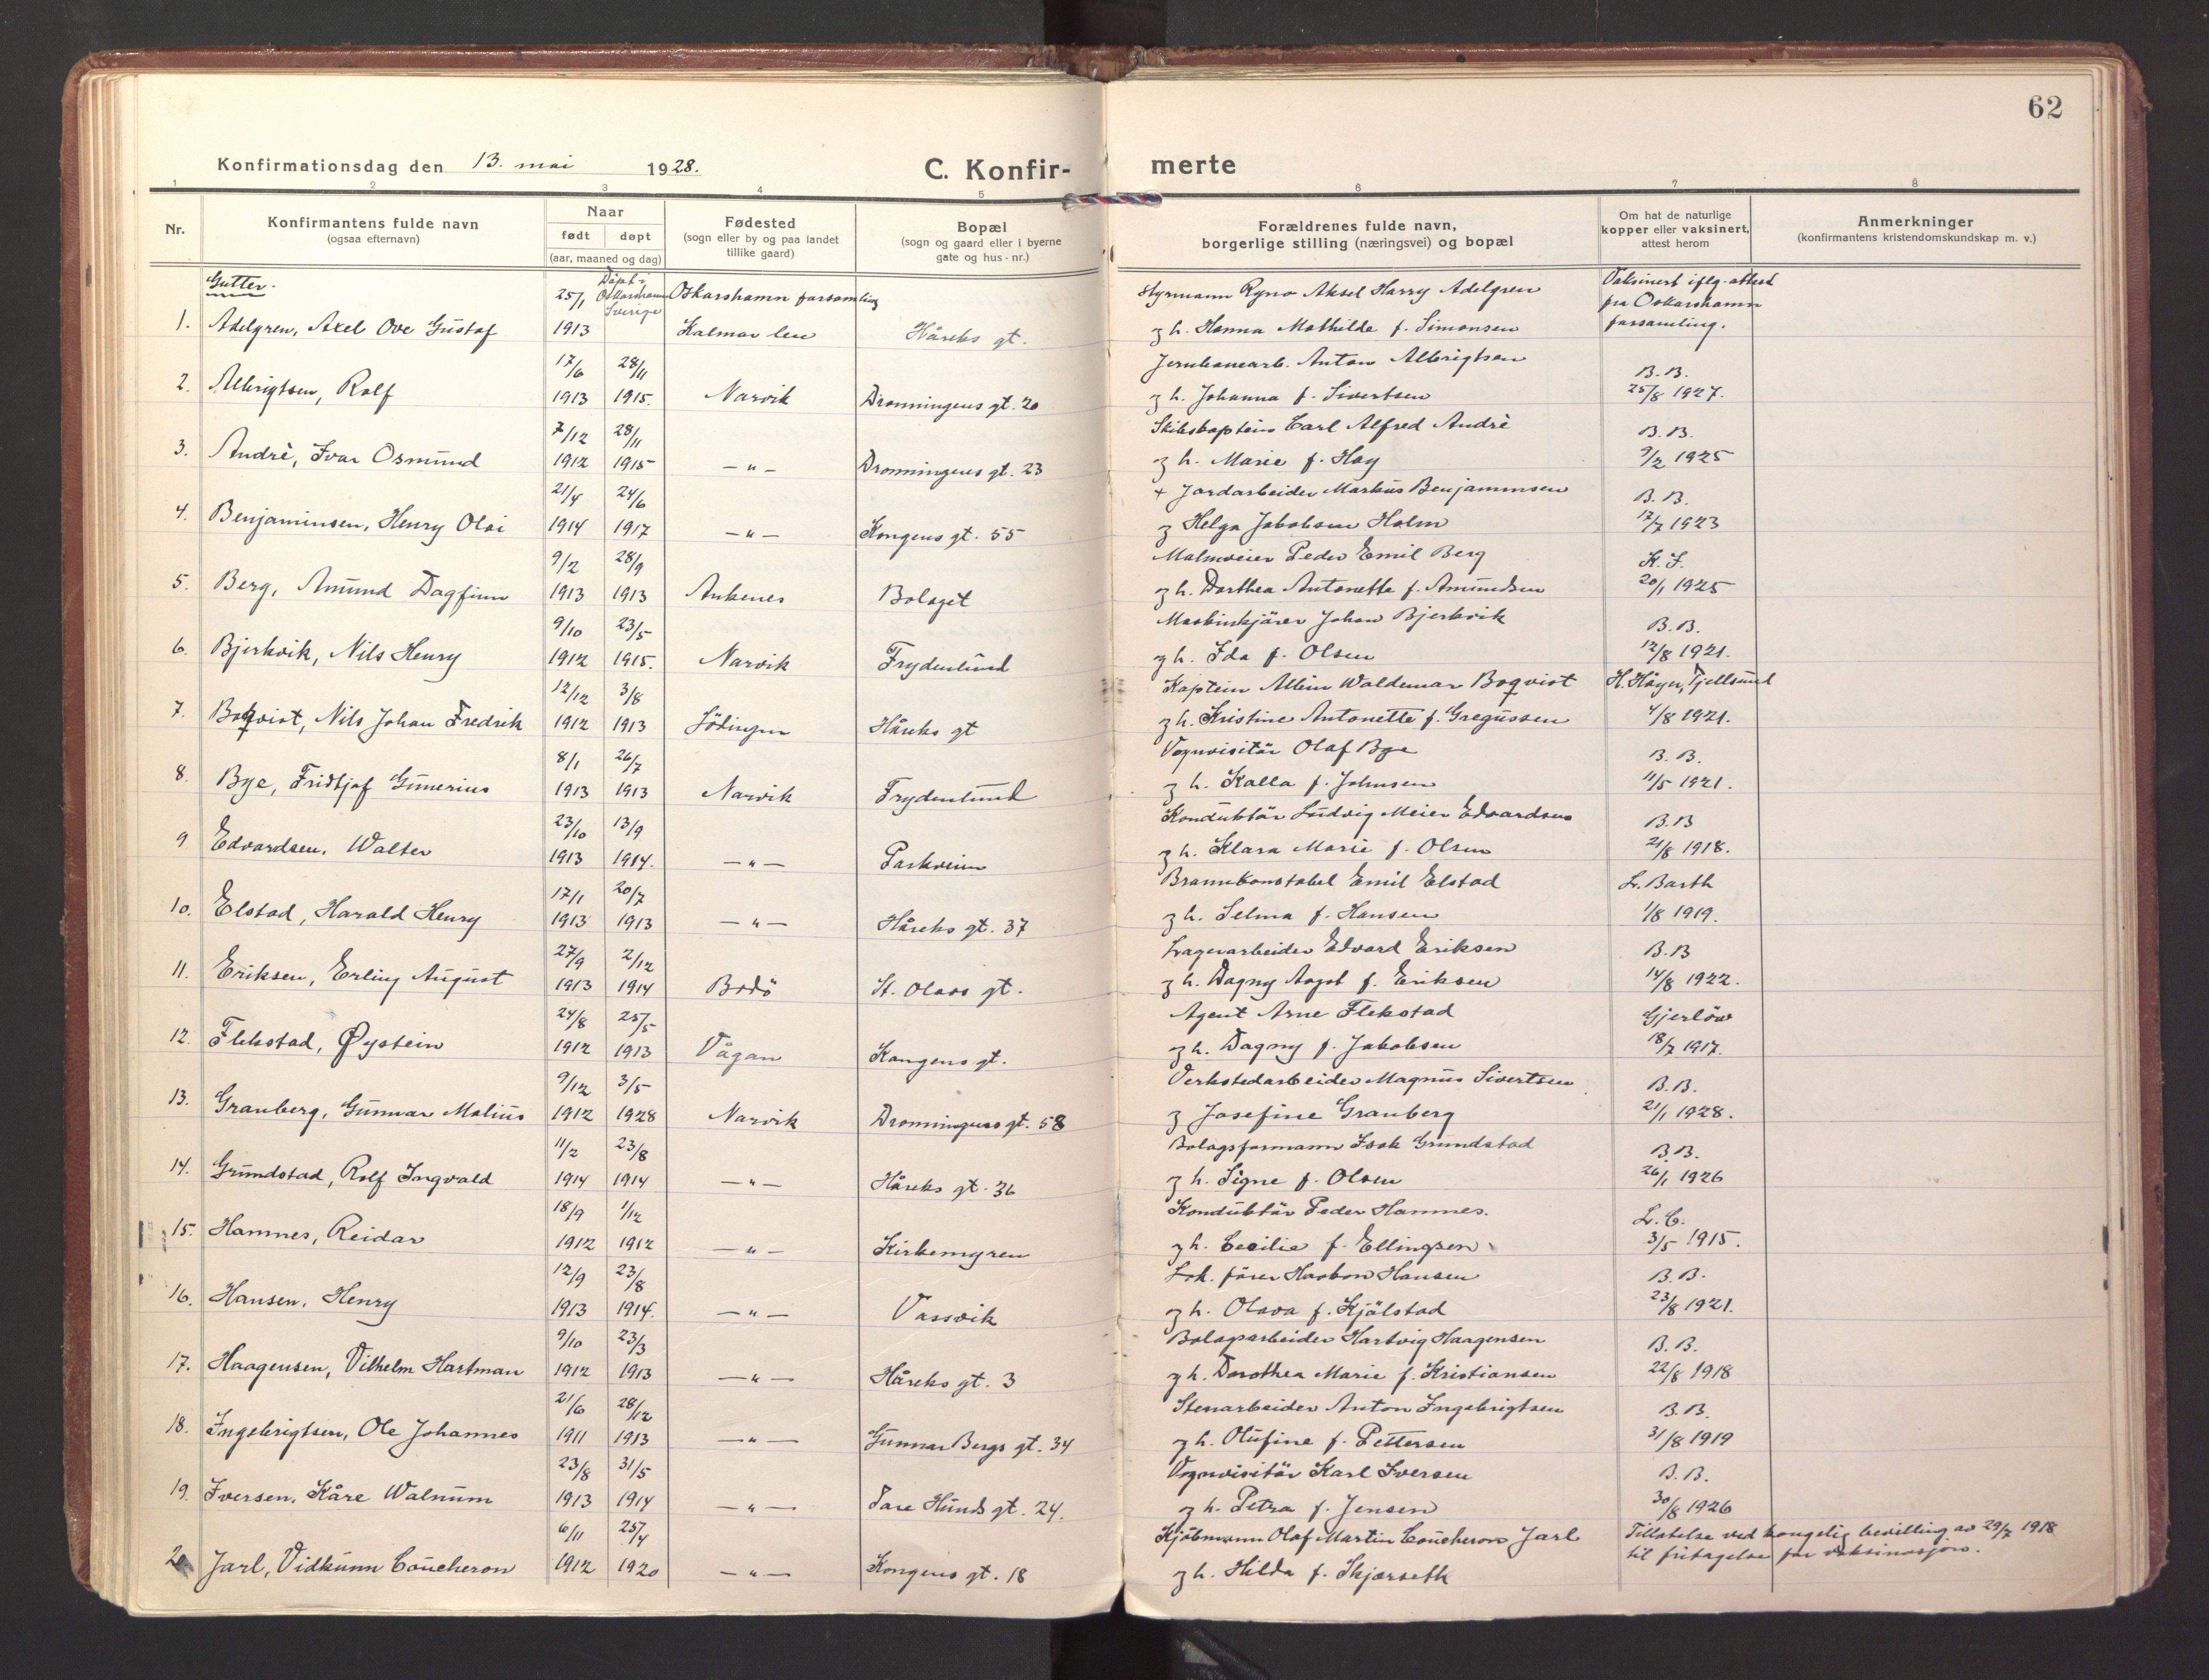 62
Konfirmationsdag den 13. mai 1928.
C. Konfir-
merte
1 2 3 4 5 6 7 8
Nr.
Konfirmantens fulde navn
(ogsaa efternavn)
Naar
født døpt
(aar, maaned og dag)
Fødested
(sogn eller by og paa landet
tillike gaard)
Bopæl
(sogn og gaard eller i byerne
gate og hus-nr.)
Forældrenes fulde navn,
borgerlige stilling (næringsvei) og bopæl
Om hat de naturlige
kopper eller vaksinert,
attest herom
Anmerkninger
(konfirmantens kristendomskundskap m. v.)
Gutter.
25/1 Döpt i Oskarshamn Sverige Oskarshamn forsamling Styrmann Ryno Aksel Harry Adelgren Vaksinert iflg. attest
fra Oskarshamn
1. Adelgren, Axel Ove Gustaf 1913 Kalmar len Håreks gt. g h. Hanna Mathilde f. Simonsen forsamling.
17/6 28/11 Jernbanearb. Anton Albrigtsen B.B.
2. Albrigtsen, Rolf 1913 1915. Narvik Dronningens gt. 20 g h. Johanna f. Sivertsen 25/8 1927.
7/12 28/11 Skibskaptein Carl Alfred Andrè B.B.
3. Andrè, Ivar Osmund 1912 1915 — " — Dronningens gt. 23 g h. Marie f. Hay 9/2 1925
21/4 24/6 + Jordarbeider Markus Benjaminsen B.B.
4. Benjaminsen, Henry Olai 1914 1917 — " — Kongens gt. 55 g Helga Jakobsen Holm 17/7 1923
9/2 28/9 Malmveier Peder Emil Berg K.J.
5. Berg, Amund Dagfinn 1913 1913 Ankenes Bolaget g h. Dorthea Antonette f. Amundsen 20/1 1925
9/10 23/5 Maskinkjører Johan Bjerkvik B.B.
6. Bjerkvik, Nils Henry 1912 1915. Narvik Frydenlund g h. Ida f. Olsen 12/8 1921.
12/12 3/8 Kaptein Albin Waldemar Boqvist H. Höyer, Tjellsund
7. Boqvist, Nils Johan Fredrik 1912 1913 Lödingen Håreks gt g h. Kristine Antonette f. Gregussen 4/8 1921.
8/1 26/7 Vognvisitör Olaf Bye B.B.
8. Bye, Fridtjof Gunerius 1913 1913 Narvik Frydenlund g h. Kalla f. Johnsen 11/5 1921.
23/10 13/9 Konduktör Ludvig Meier Edvardsen B.B
9 Edvardsen, Walter 1913 1914. — " — Parkveien g h. Klara Marie f. Olsen 21/8 1918.
17/1 20/7 Brannkonstabel Emil Elstad L. Barth
10. Elstad, Harald Henry 1913 1913 — " — Håreks gt. 37 g h. Selma f. Hansen 1/8 1919.
27/9 2/12 Lagerarbeider Edvard Eriksen B.B
11. Eriksen, Erling August 1913 1914 Bodö St. Olavs gt. g h. Dagny f. Eriksen 14/8 1922.
24/8 25/5 Agent Arne Flekstad Gjerlöw
12. Flekstad, Øystein 1912 1913 Vågan Kongens gt. g h. Dagny f. Jakobsen 18/7 1917.
9/12 3/5 Verkstedarbeider Magnus Sivertsen B.B.
13. Granberg, Gunnar Malius 1912 1928 Narvik Dronningens gt. 58 g Josefine Granberg 21/1 1928.
11/2 23/8 Bolagsformann Isak Grundstad B.B.
14. Grundstad, Rolf Ingvald 1914 1914 — " — Håreks gt. 36 g h. Signe f. Olsen 26/1 1926
18/9 1/12 Konduktör Peder Hamnes. L.C.
15. Hamnes, Reidar 1912 1912 — " — Kirkemyren g h. Cecilie f. Ellingsen 3/5 1915.
12/9 23/8 Lok. förer Haakon Hansen B.B.
16. Hansen, Henry 1913 1914. — " — Vassvik g h. Olava f. Kjölstad 23/8 1921.
9/10 23/3 Bolagsarbeider Hartvig Haagensen B.B.
17. Haagensen, Vilhelm Hartman 1912 1913 — " — Håreks gt. 3 g h. Dorothea Marie f. Kristiansen 22/8 1918
21/6 28/12 Stenarbeider Anton Ingebrigtsen B.B.
18. Ingebrigtsen, Ole Johannes 1911 1913 — " — Gunnar Bergs gt. 34 g h. Olufine f. Pettersen 31/8 1919
23/8 31/5 Vognvisitör Karl Iversen B.B.
19. Iversen, Kåre Walnum 1913 1914 — " — Tore Hunds gt. 24. g h. Petra f. Jensen 30/8 1926
6/11 25/4 Kjöbmann Olaf Martin Coucheron Jarl Tillatelse ved kongelig bevilling av 29/7 1918
20 Jarl, Vidkunn Coucheron 1912 1920 — " — Kongens gt. 18 g h. Hilda f. Skjærseth til fritagelse for vaksinasjon.